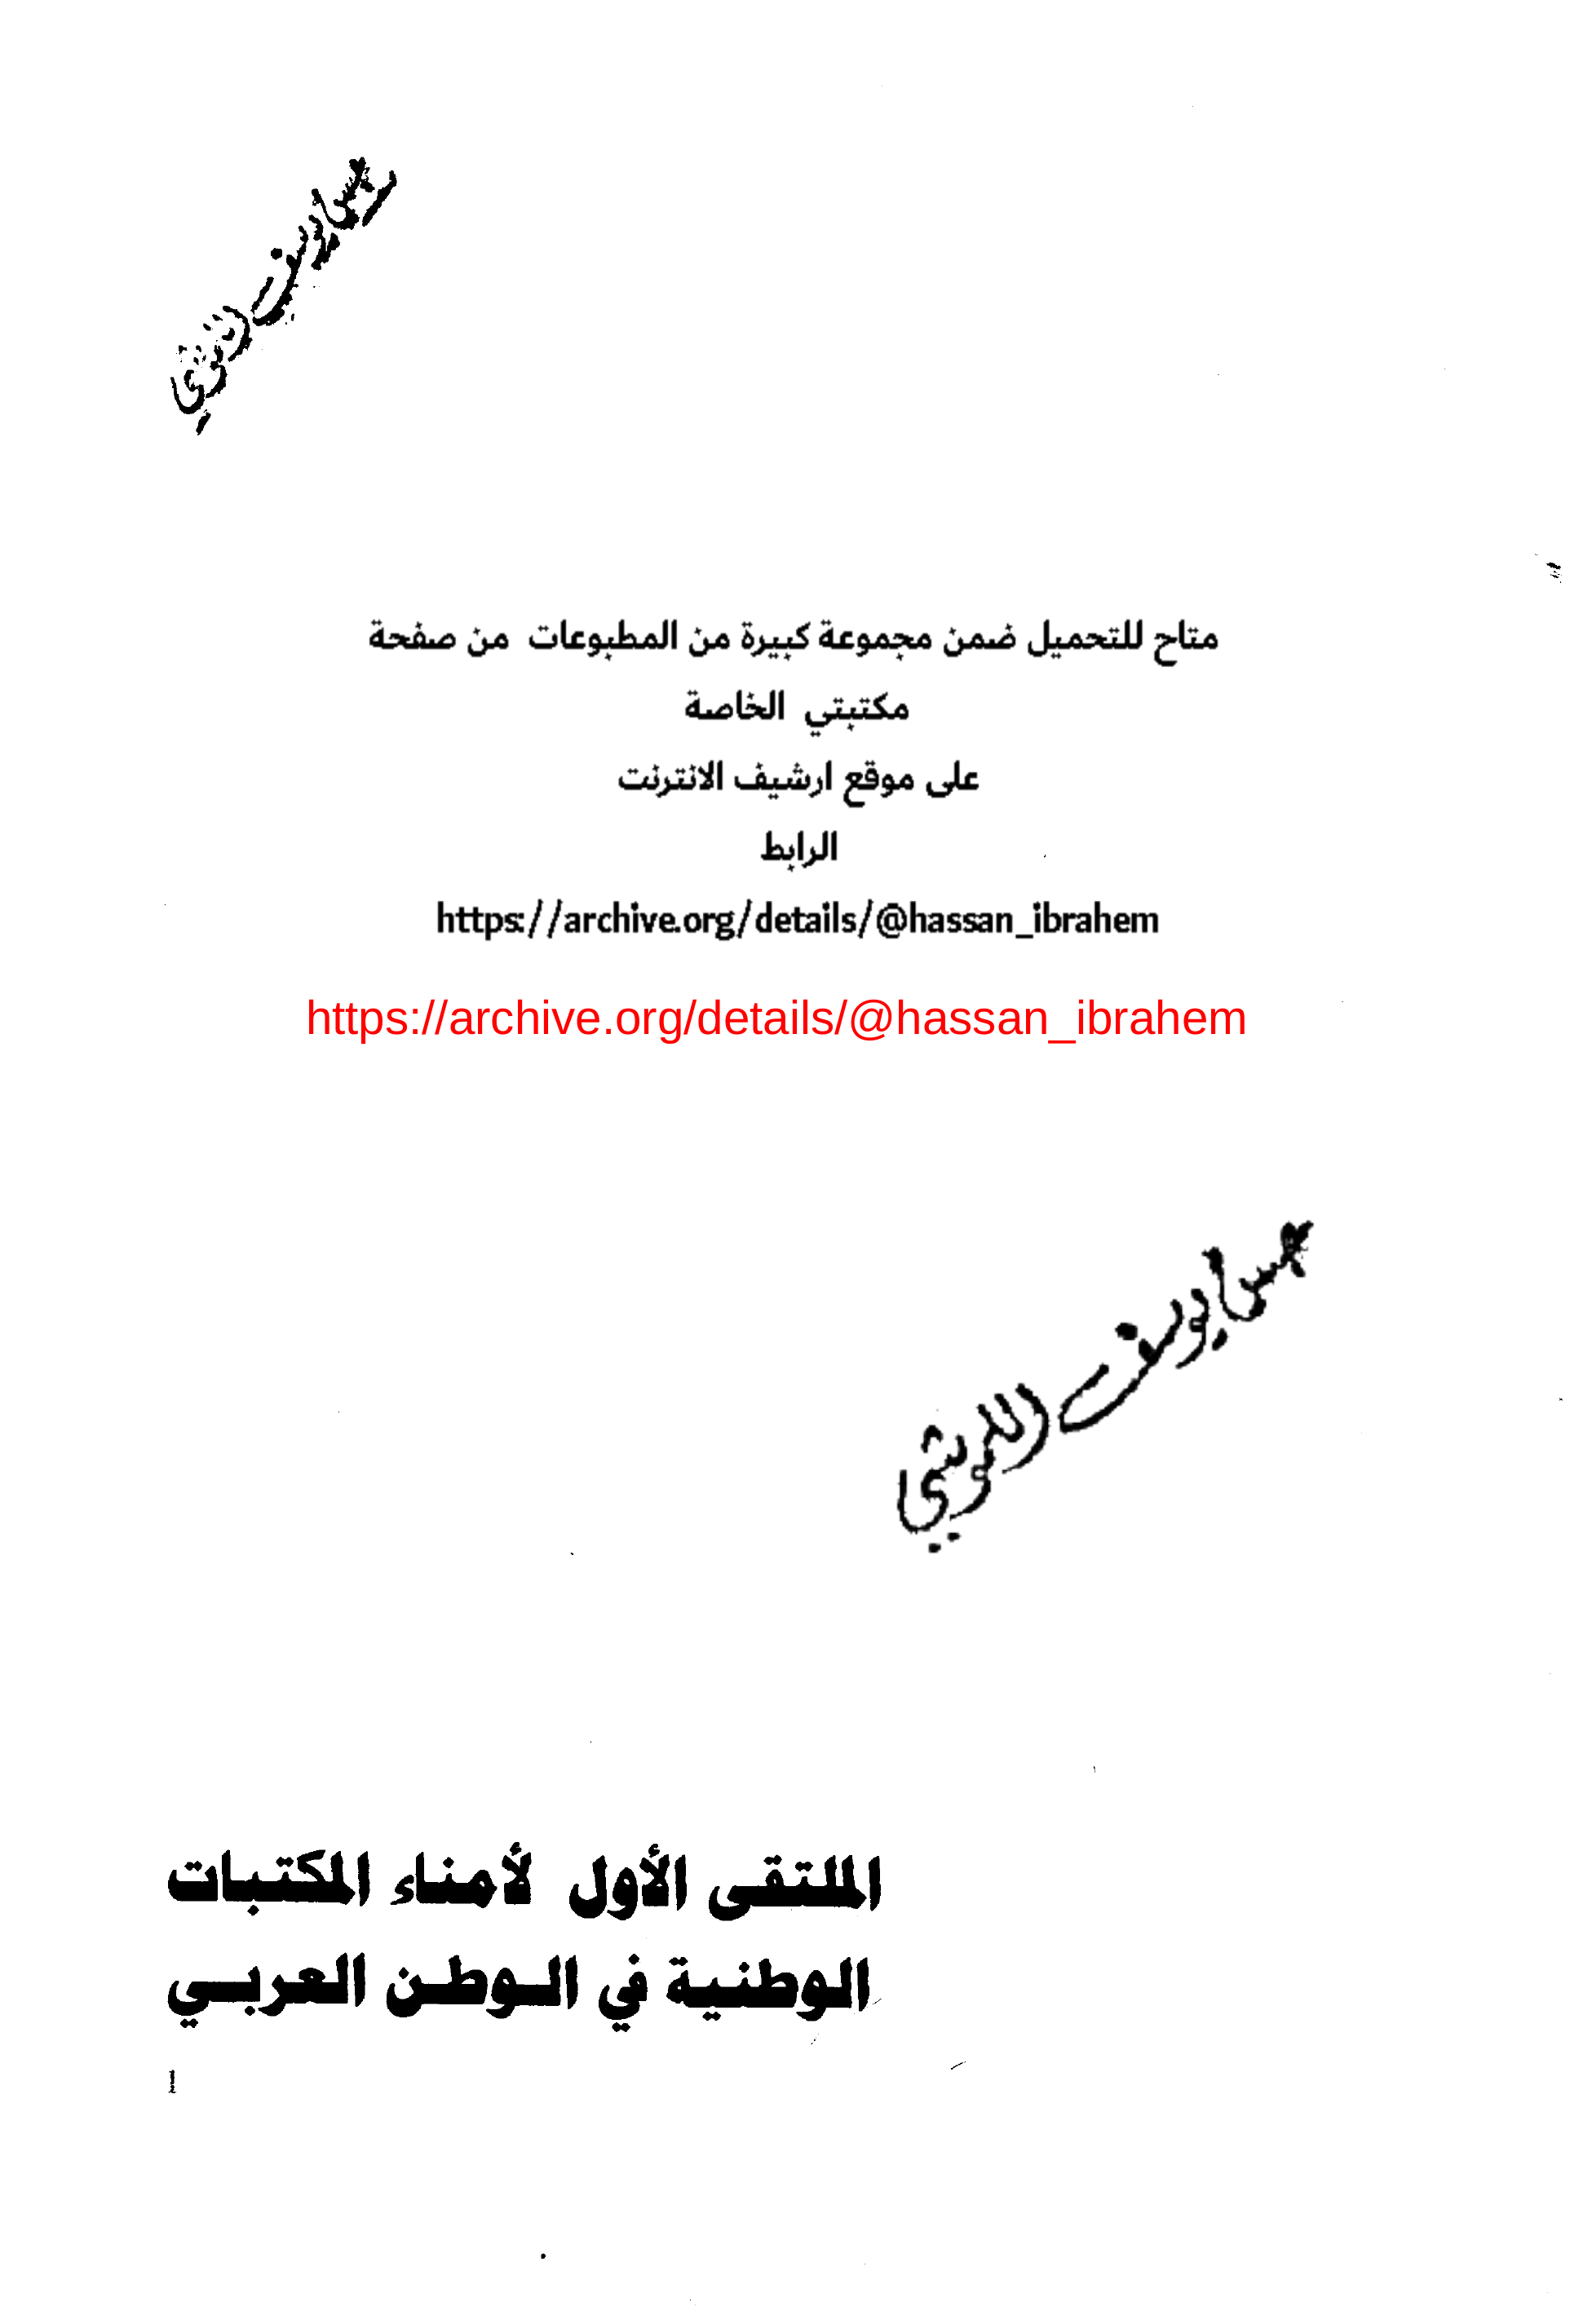 متاح للتحميل ضمن مجموعة كبيرة من المطبوعات من صفحة
مكتبتي الخاصة
على موقع ارشيف الانترنت
الرابط
https://archive.org/details/@hassan_ibrahem
https://archive.org/details/@hassan_ibrahem
يوسف
الملتقى الأول لأمناء المكتبات
الوطنية في الوطن العربي
1